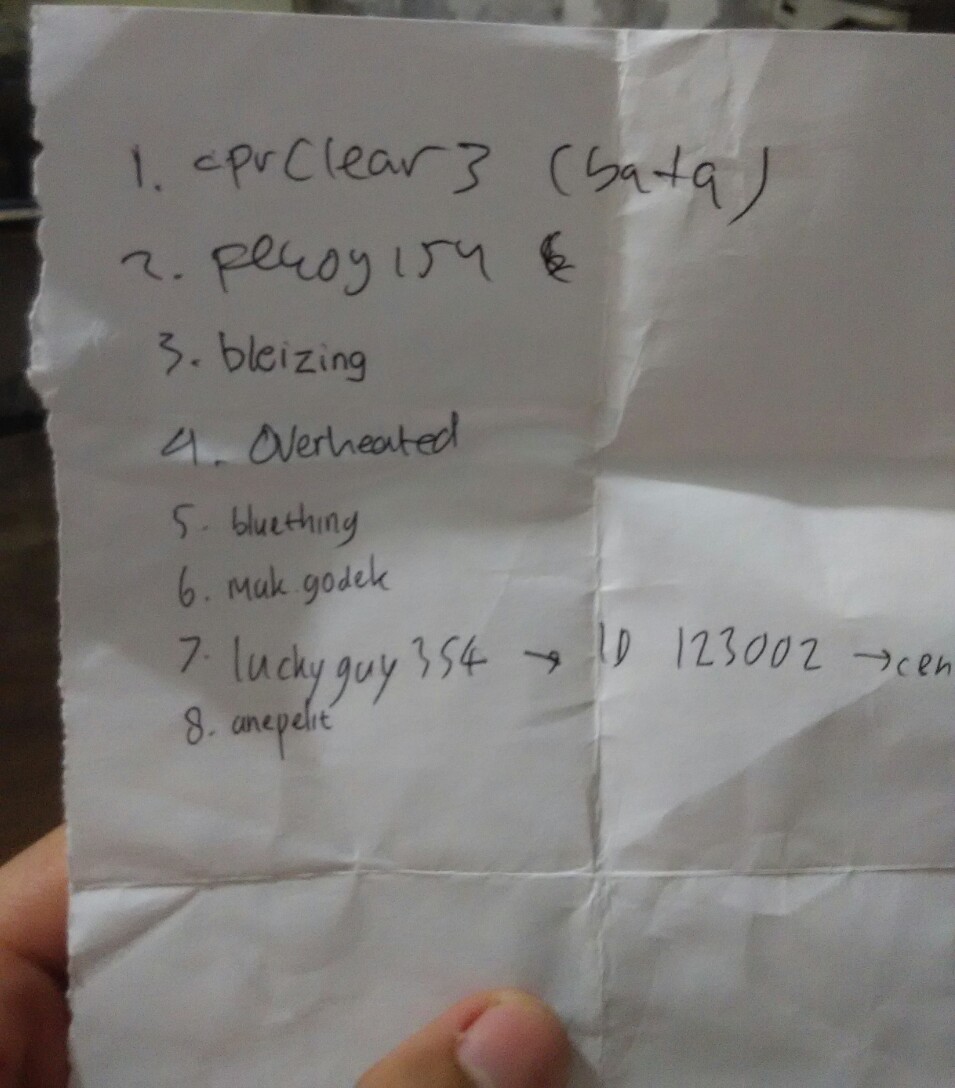 1. cprClear3 (bata)
2. pekoy154
3. bleizing
4. Overheated
5. bluething
6. Mak godek
7. luckyguy354 → ID 123002 → cen
8. anepelit